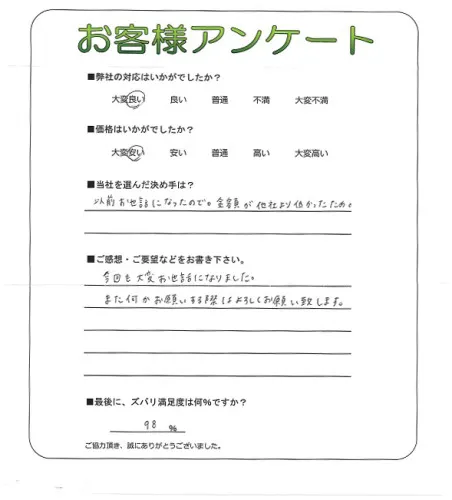 お客様アンケート
■弊社の対応はいかがでしたか？
大変良い 良い 普通 不満 大変不満
■価格はいかがでしたか？
大変安い 安い 普通 高い 大変高い
■当社を選んだ決め手は？
以前お世話になったので。金額が他社より低かったため。
■ご感想・ご要望などをお書き下さい。
今回も大変お世話になりました。
また何かお願いする際はよろしくお願い致します。
■最後に、ズバリ満足度は何%ですか？
98 %
ご協力頂き、誠にありがとうございました。